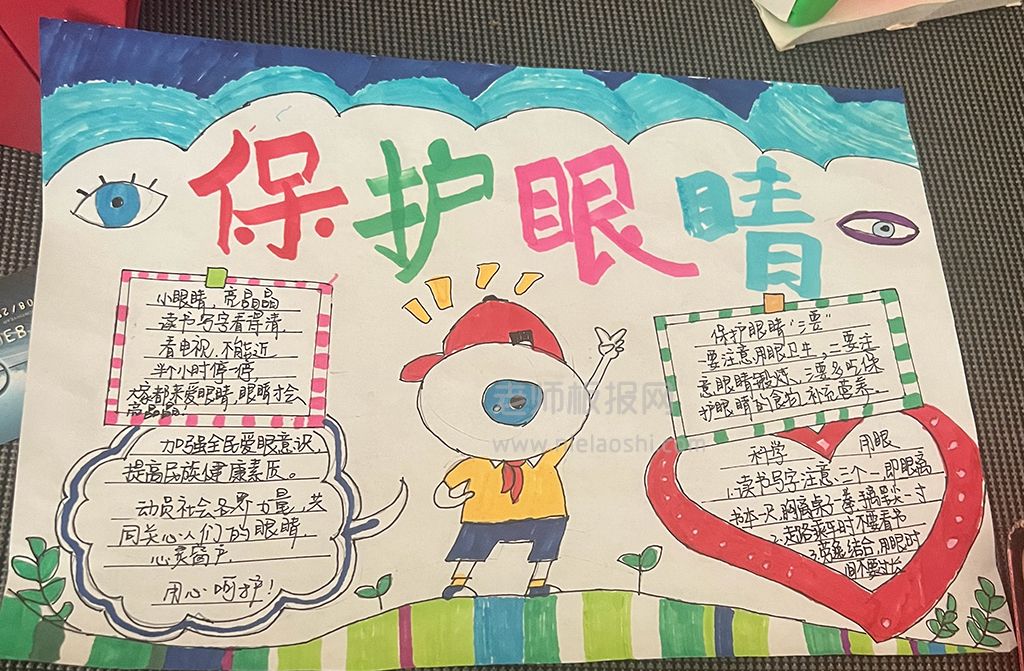 保护眼睛
小眼睛，亮晶晶
读书写字看得清，
看电视，不能近
半个小时停一停
大家都来爱眼睛，眼睛才会
加强全民爱眼意识，
提高民族健康素质。
动员社会各界力量，共
同关心人们的眼睛，
心灵窗户，
用心呵护！
保护眼睛"三要"
一要注意用眼卫生，二要注
意眼睛锻炼、三要多吃保
护眼睛的食物，补充营养
科学 用眼
1.读书写字注意三个一即眼离
书本一尺，胸离桌子一拳，手离笔尖一寸
2.走路乘车时不要看书
3.劳逸结合，用眼时
间不要过长
老师板报网